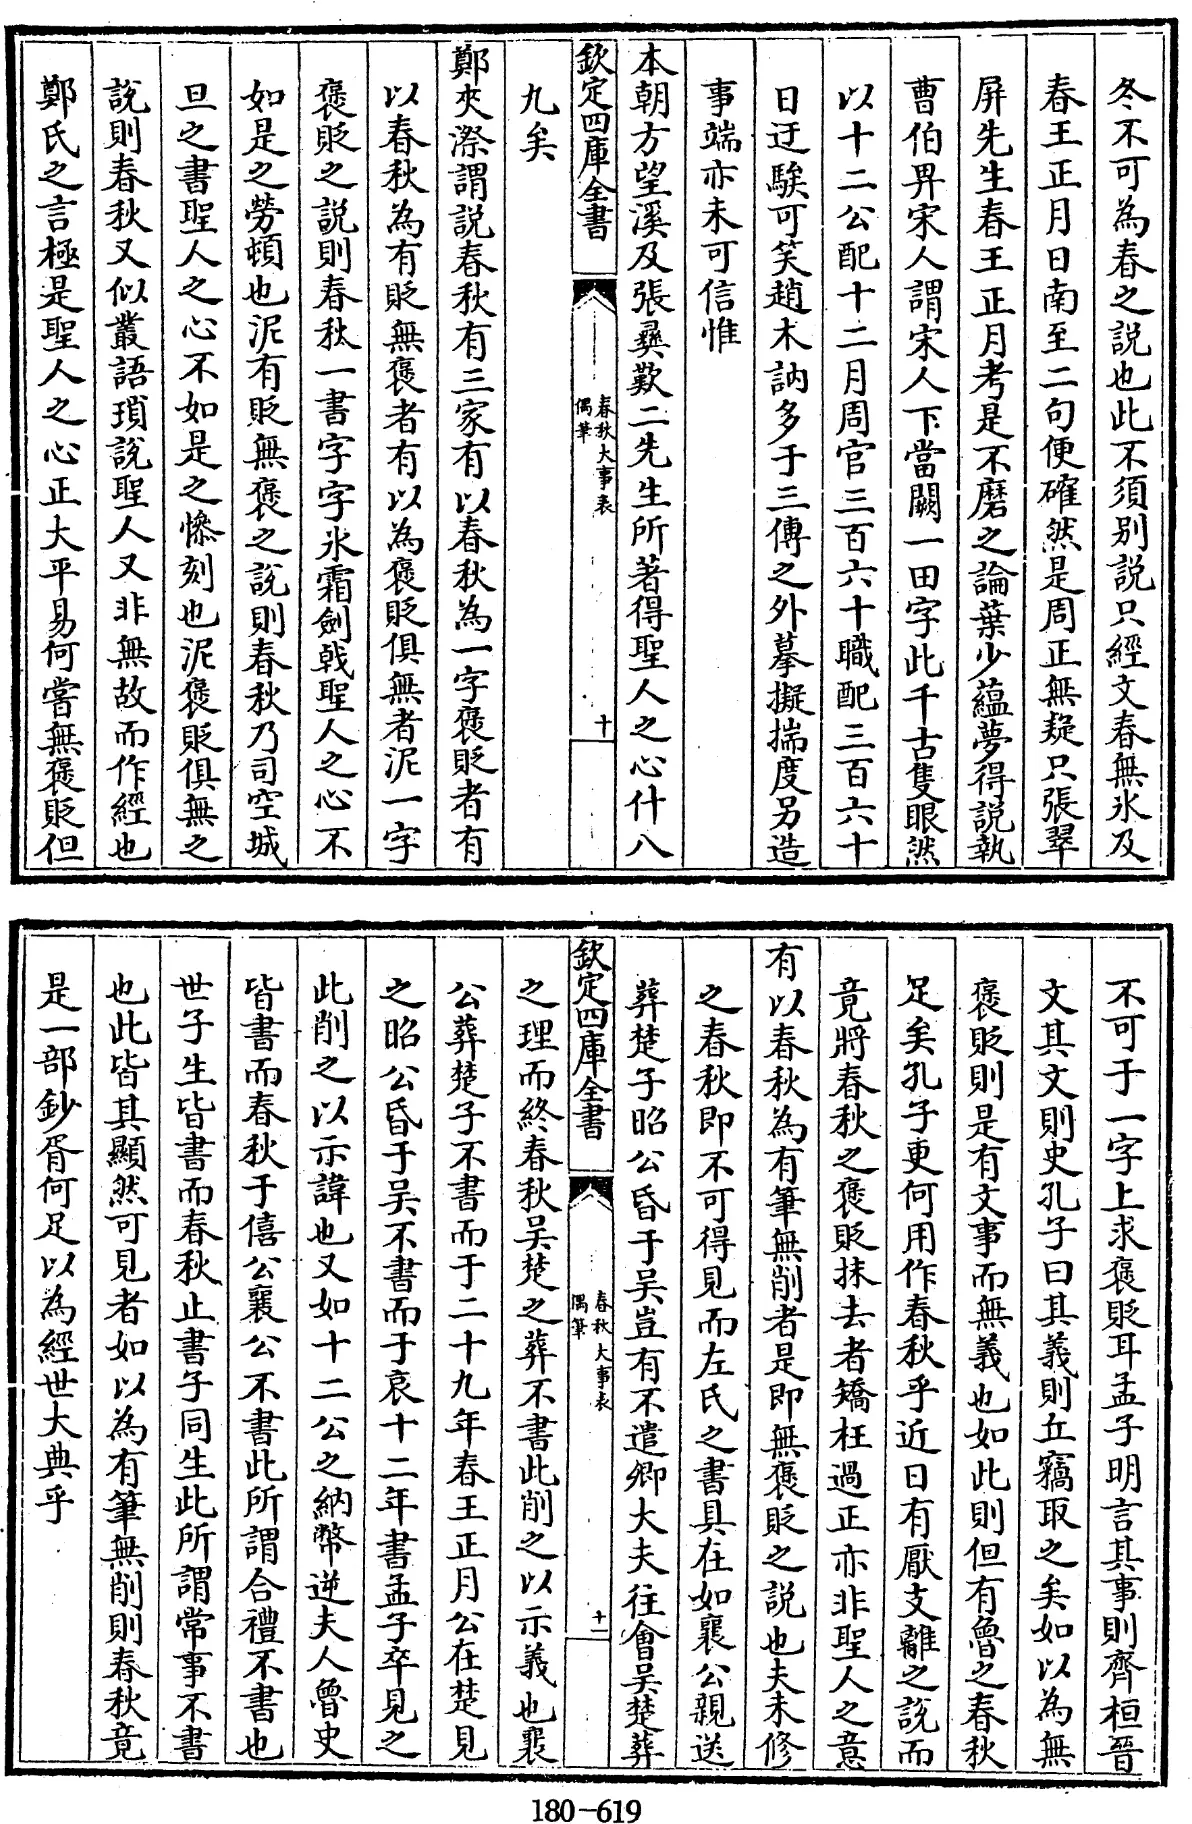 冬不可為春之説也此不須别説只經文春無氷及
春王正月日南至二句便確然是周正無疑只張翠
屏先生春王正月考是不磨之論葉少藴夢得説執
曹伯畀宋人謂宋人下當闕一田字此千古隻眼然
以十二公配十二月周官三百六十職配三百六十
日迂騃可笑趙木訥多于三傳之外摹擬揣度另造
事端亦未可信惟
本朝方望溪及張彞歎二先生所著得聖人之心什八
欽定四庫全書
春秋大事表
偶筆
十
九矣
鄭夾漈謂説春秋有三家有以春秋為一字褒貶者有
以春秋為有貶無褒者有以為褒貶俱無者泥一字
褒貶之説則春秋一書字字氷霜劍戟聖人之心不
如是之勞頓也泥有貶無褒之說則春秋乃司空城
旦之書聖人之心不如是之慘刻也泥褒貶俱無之
説則春秋又似叢語瑣説聖人又非無故而作經也
鄭氏之言極是聖人之心正大平易何嘗無褒貶但
不可于一字上求褒貶耳孟子明言其事則齊桓晉
文其文則史孔子曰其義則丘竊取之矣如以為無
褒貶則是有文事而無義也如此則但有魯之春秋
足矣孔子更何用作春秋乎近日有厭支離之説而
竟將春秋之褒貶抹去者矯枉過正亦非聖人之意
有以春秋為有筆無削者是即無褒貶之説也夫未修
之春秋即不可得見而左氏之書具在如襄公親送
葬楚子昭公昏于吴豈有不遣卿大夫往會吴楚葬
欽定四庫全書
春秋大事表
偶筆
十一
之理而終春秋吴楚之葬不書此削之以示義也襄
公葬楚子不書而于二十九年春王正月公在楚見
之昭公昏于吴不書而于哀十二年書孟子卒見之
此削之以示諱也又如十二公之納幣逆夫人魯史
皆書而春秋于僖公襄公不書此所謂合禮不書也
世子生皆書而春秋止書子同生此所謂常事不書
也此皆其顯然可見者如以為有筆無削則春秋竟
是一部鈔胥何足以為經世大典乎
180-619